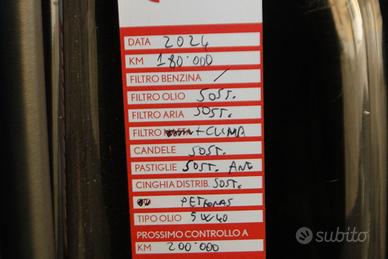 DATA 2024
KM 180.000
FILTRO BENZINA /
FILTRO OLIO SOST.
FILTRO ARIA SOST.
FILTRO + CLIMA
CANDELE SOST.
PASTIGLIE SOST. ANT
CINGHIA DISTRIB. SOST.
PETRONAS
TIPO OLIO 5W40
PROSSIMO CONTROLLO A
KM 200.000
subito